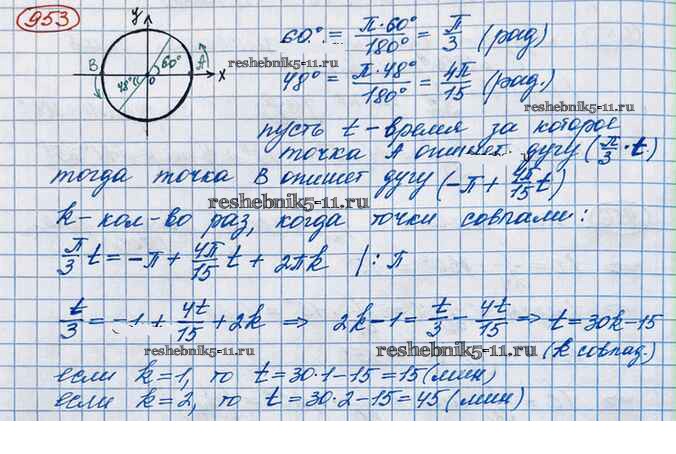 953
y
B
A
60°
48°
0
x
60° = π·60°/180° = π/3 (рад)
reshebnik5-11.ru
48° = π·48°/180° = 4π/15 (рад.)
reshebnik5-11.ru
пусть t - время за которое
точка A опишет дугу (π/3 · t)
тогда точка B опишет дугу (-π + 4π/15 t)
reshebnik5-11.ru
k - кол-во раз, когда точки совпали:
π/3 t = -π + 4π/15 t + 2πk | : π
t/3 = -1 + 4t/15 + 2k ⇒ 2k-1 = t/3 - 4t/15 ⇒ t = 30k-15
reshebnik5-11.ru
reshebnik5-11.ru
(k совпад.)
если k=1, то t=30·1-15=15 (мин)
если k=2, то t=30·2-15=45 (мин)